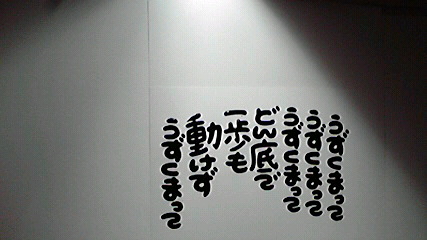 うずくまって
うずくまって
うずくまって
どん底で
一歩も
動けず
うずくまって